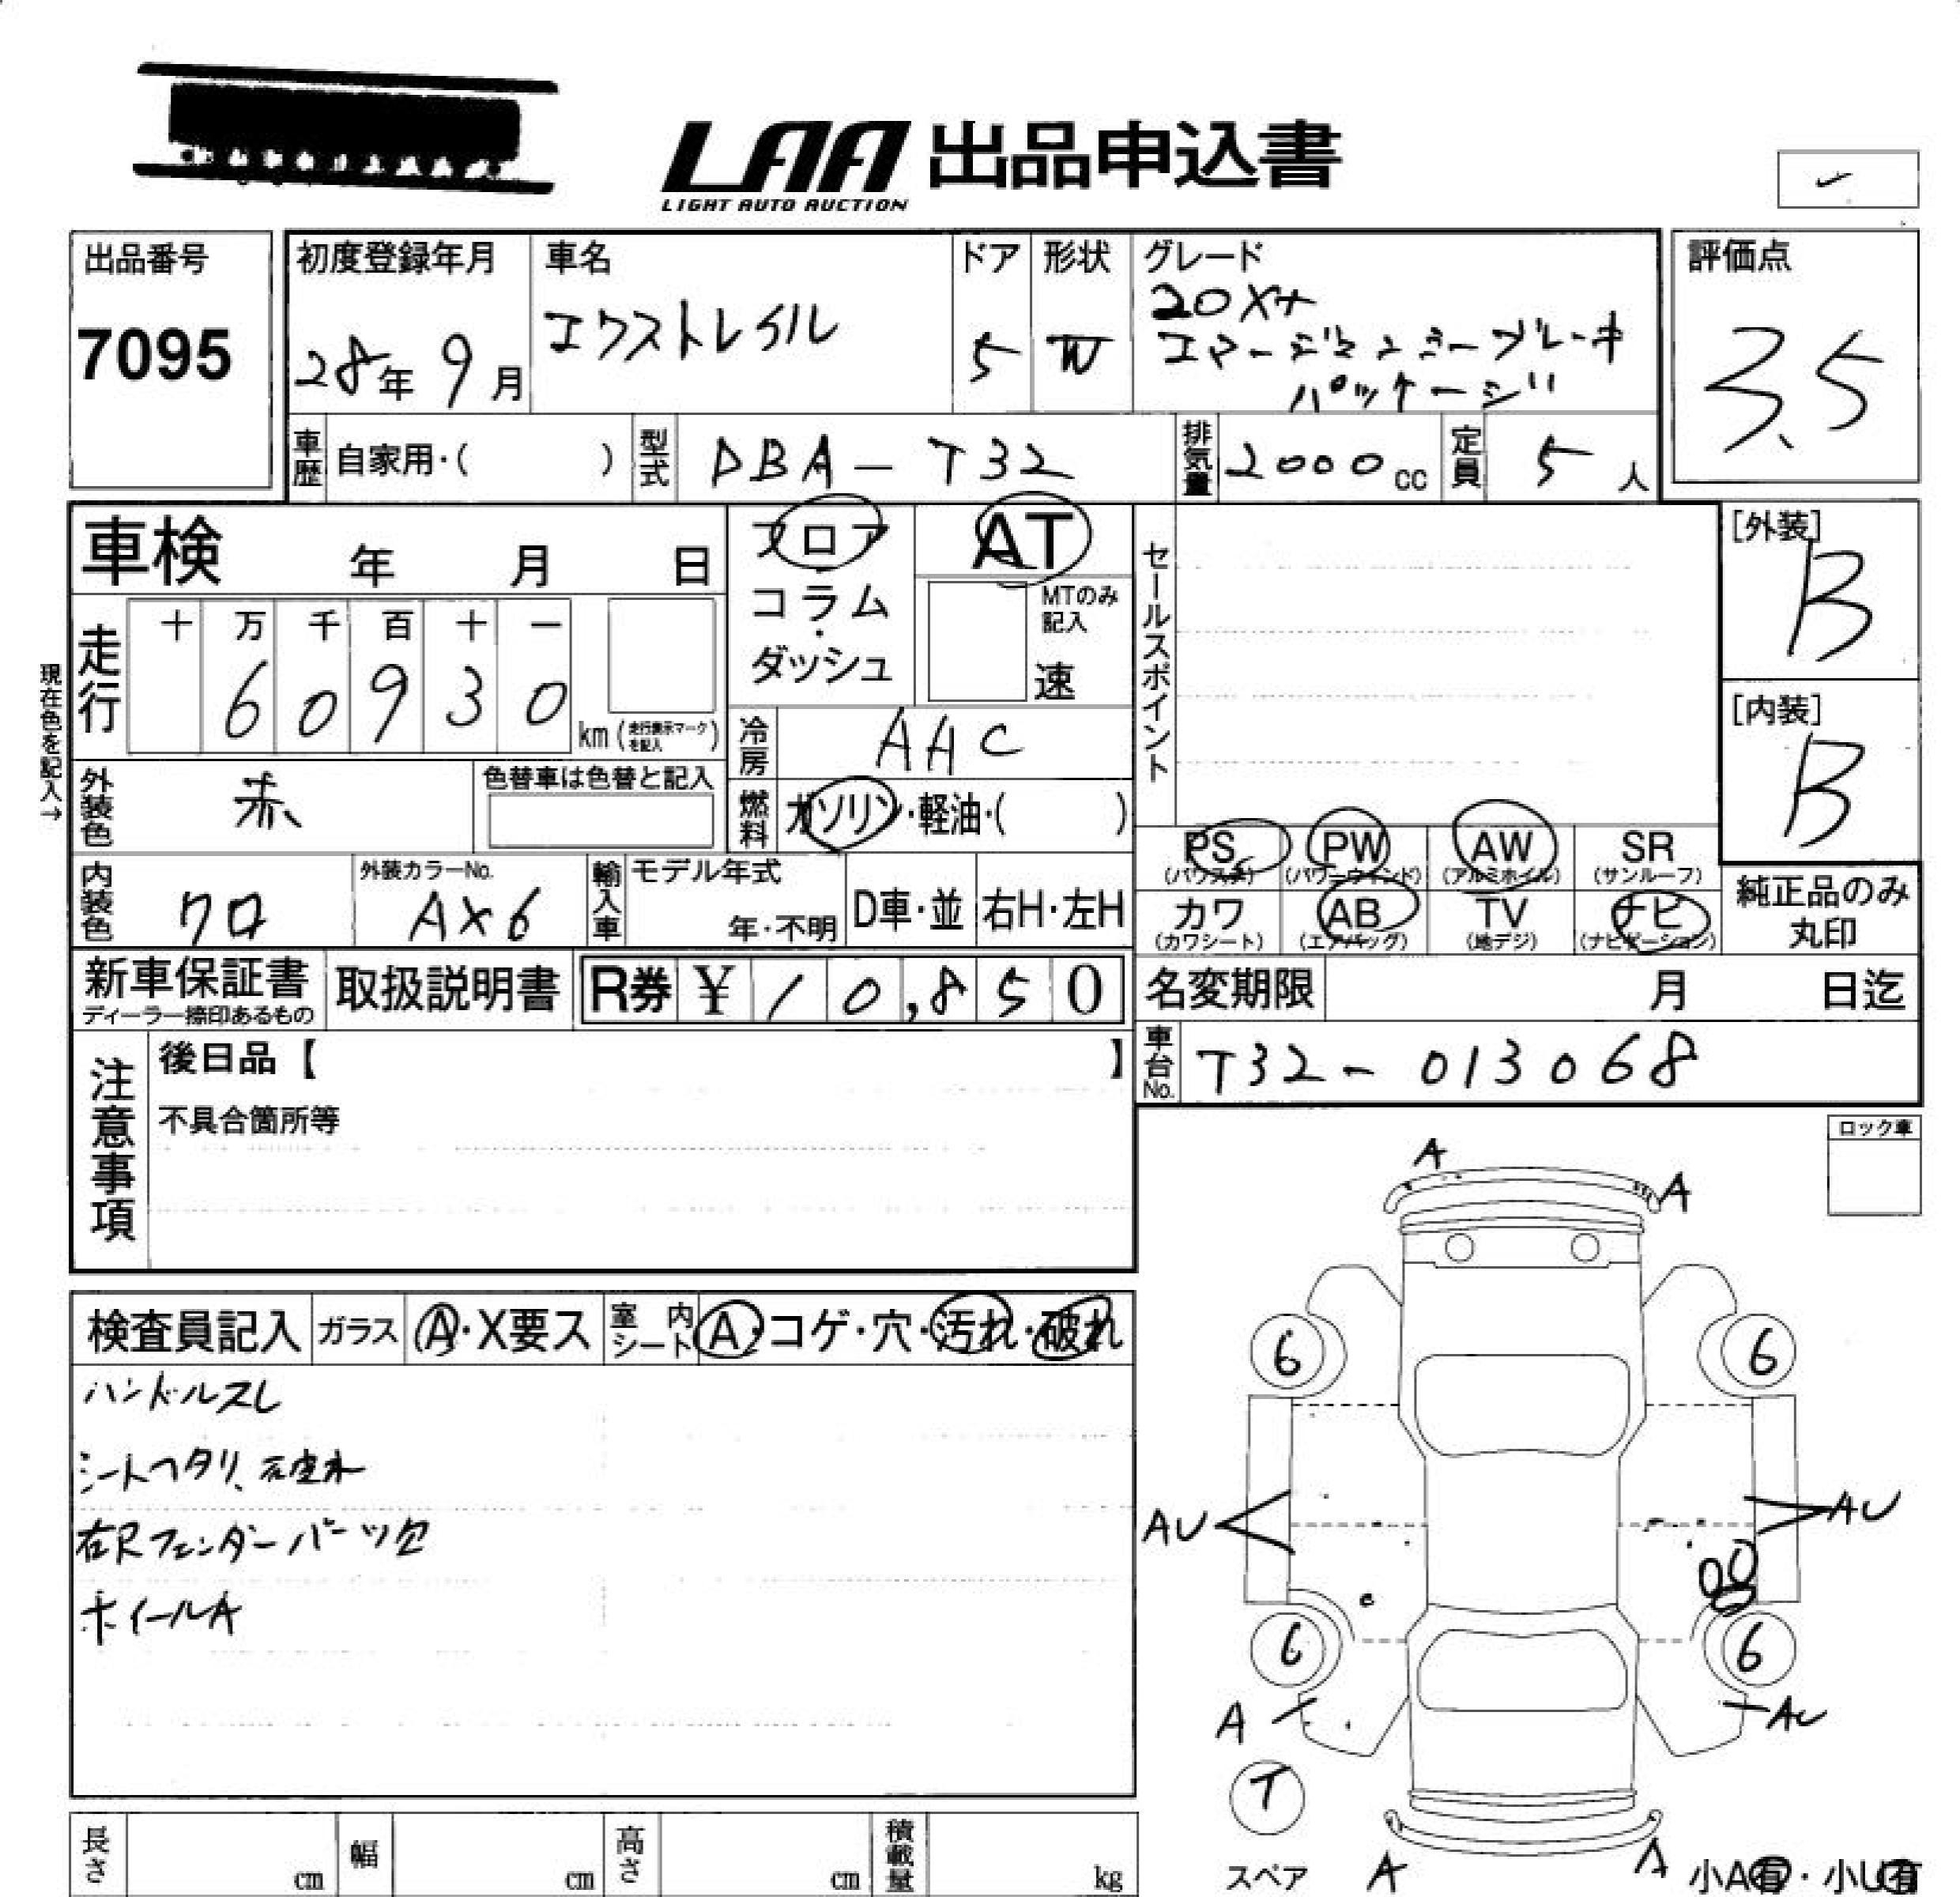 LAA 出品申込書
LIGHT AUTO AUCTION
出品番号
7095
初度登録年月
28年 9月
車名
エクストレイル
ドア
5
形状
W
グレード
20X+
エマージェンシーブレーキ
パッケージ
評価点
3.5
車歴 自家用・( )
型式 DBA-T32
排気量 2000cc
定員 5人
車検 年 月 日
フロア・コラム・ダッシュ
AT
MTのみ記入
速
セールスポイント
[外装]
B
[内装]
B
現在色を記入→
走行
十 万 千 百 十 一
6 0 9 3 0 km(走行表示マークを記入)
冷房 AAC
外装色 赤
色替車は色替と記入
燃料 ガソリン・軽油・( )
PS (パワステ)
PW (パワーウィンド)
AW (アルミホイル)
SR (サンルーフ)
カワ (カワシート)
AB (エアバッグ)
TV (地デジ)
ナビ (ナビゲーション)
純正品のみ
丸印
内装色 クロ
外装カラーNo.
AX6
輸入車
モデル年式
年・不明
D車・並
右H・左H
新車保証書
ディーラー捺印あるもの
取扱説明書
R券 ¥10,850
名変期限 月 日迄
車台No. T32-013068
注意事項
後日品【 】
不具合箇所等
ロック車
A
A
検査員記入
ガラス A・X要ス
室内シート A・コゲ・穴・汚れ・破れ
ハンドルスレ
シートヘタリ、
右Rフェンダーパーツ欠
ホイールA
6
6
AU
AU
6
6
A
AU
T
スペア
A
A
小A有・小U有
長さ cm
幅 cm
高さ cm
積載量 kg